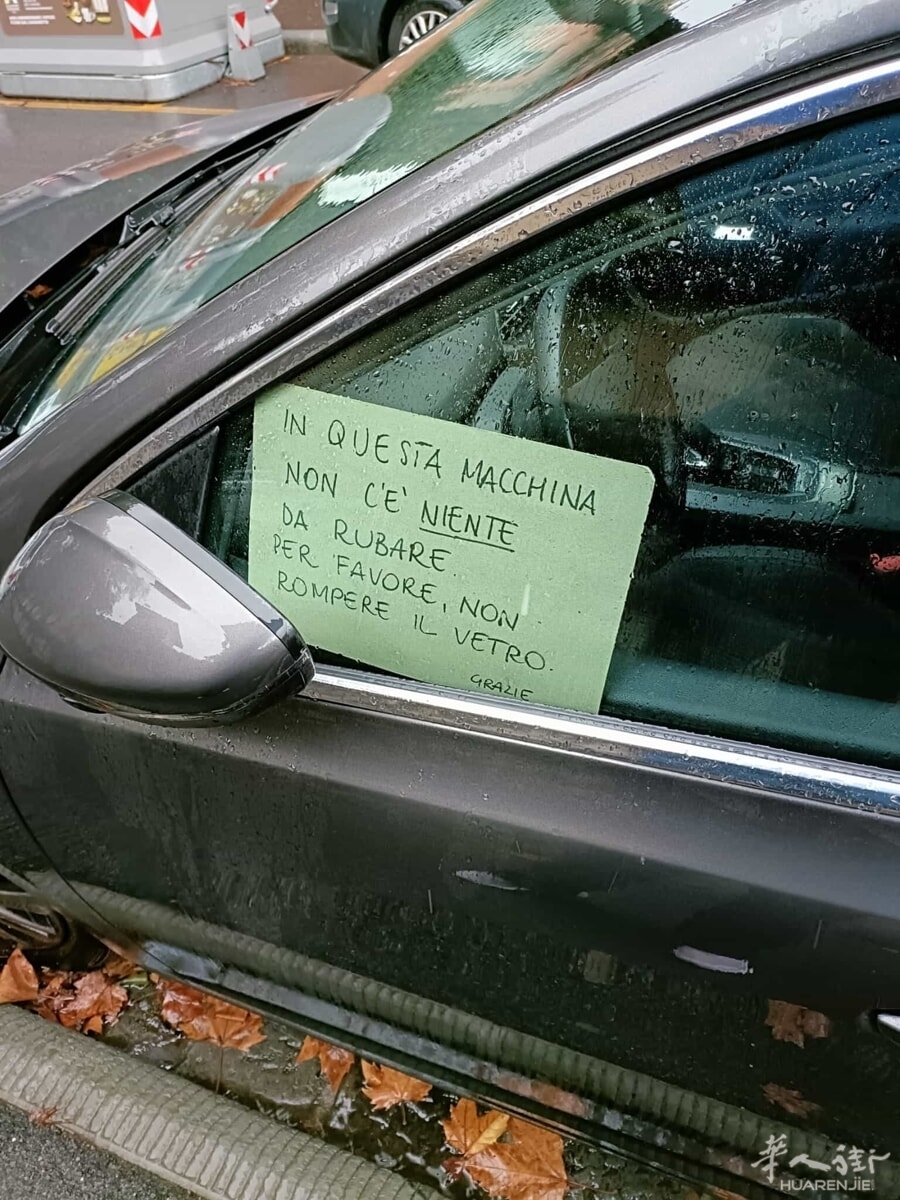 IN QUESTA MACCHINA
NON C'E' NIENTE
DA RUBARE.
PER FAVORE, NON
ROMPERE IL VETRO.
GRAZIE
华人街
HUARENJIE